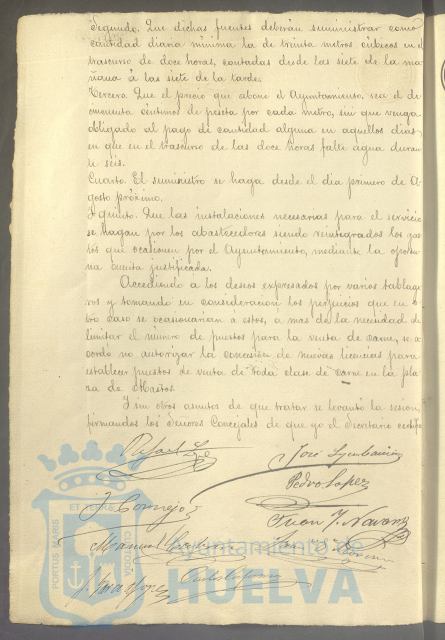 Segundo. Que dichas fuentes deberán suministrar como
cantidad diaria mínima la de treinta metros cúbicos en el
trascurso de doce horas, contadas desde las siete de la ma
ñana á las siete de la tarde.
Tercero. Que el precio que abone el Ayuntamiento, sea el de
cincuenta céntimos de peseta por cada metro, sin que venga
obligado al pago de cantidad alguna en aquellos dias
en que en el trascurso de las doce horas falte agua duran
te seis.
Cuarto. El suministro se haga desde el dia primero de A
gosto próximo.
Y quinto. Que las instalaciones necesarias para el servicio
se hagan por los abastecedores siendo reintegrados los gas
tos que ocasionen por el Ayuntamiento, mediante la oportu
na cuenta justificada.
Accediendo á los deseos expresados por varios tablage
ros y tomando en consideración los perjuicios que en o
tro caso se ocasionarian á estos, á mas de la necesidad de
limitar el número de puestos para la venta de carne, se a
cordó no autorizar la concesión de nuevas licencias para
establecer puestos de venta de toda clase de carne en la pla
za de Abastos.
Y sin otros asuntos de que tratar se levantó la sesión,
firmandola los Señores Concejales de que yo el Secretario certifico
Rafael López
José
Pedro Lopez
J. Cornejo
Juan J. Navarro
Manuel
PORTUS MARIS
ET TERRE
CUSTODIA
Ayuntamiento de
HUELVA